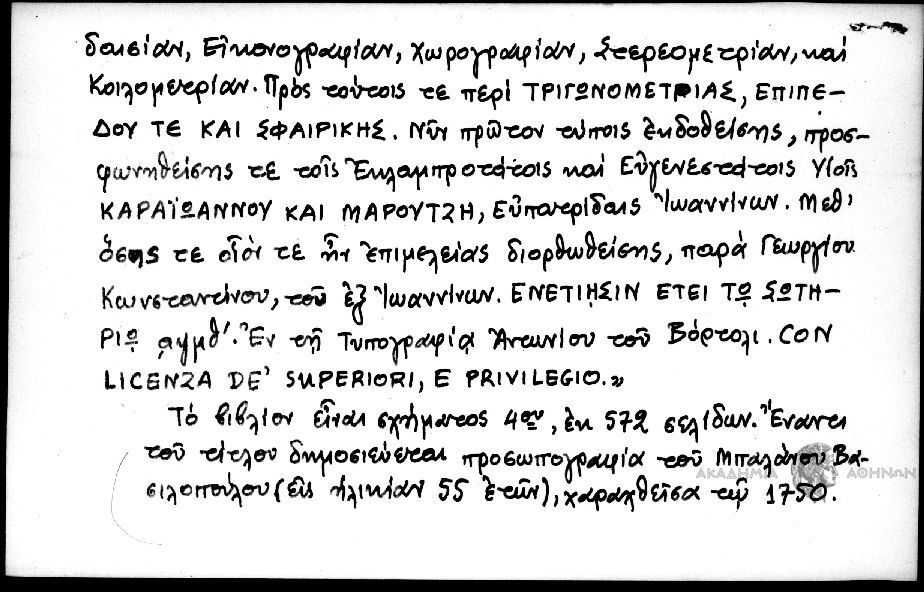 δαισίαν, Εἰκονογραφίαν, Χωρογραφίαν, Στερεομετρίαν, καί
Κοιλομετρίαν. Πρὸς τούτοις τε περί ΤΡΙΓΩΝΟΜΕΤΡΙΑΣ, ΕΠΙΠΕ-
ΔΟΥ ΤΕ ΚΑΙ ΣΦΑΙΡΙΚΗΣ. Νῦν πρῶτον τύποις ἐκδοθείσης, προσ-
φωνηθείσης τε τοῖς Ἐκλαμπροτάτοις καί Εὐγενεστάτοις Υἱοῖς
ΚΑΡΑΪΩΑΝΝΟΥ ΚΑΙ ΜΑΡΟΥΤΖΗ, Εὐπατρίδαις Ἰωαννίνων. Μεθ'
ὅσης τε οἷόν τε ἦν ἐπιμελείας διορθωθείσης, παρά Γεωργίου
Κωνσταντίνου, τοῦ ἐξ Ἰωαννίνων. ΕΝΕΤΙΗΣΙΝ ΕΤΕΙ Τῼ ΣΩΤΗ-
ΡΙῼ ͵αψμθ'. Ἐν τῇ Τυπογραφίᾳ Ἀντωνίου τοῦ Βόρτολι. CON
LICENZA DE' SUPERIORI, E PRIVILEGIO.»
Τό βιβλίον εἶναι σχήματος 4ου, ἐκ 572 σελίδων. Ἔναντι
τοῦ τίτλου δημοσιεύεται προσωπογραφία τοῦ Μπαλάνου Βα-
σιλοπούλου (εἰς ἡλικίαν 55 ἐτῶν), χαραχθεῖσα τῷ 1750.
ΑΚΑΔΗΜΙΑ ΑΘΗΝΩΝ